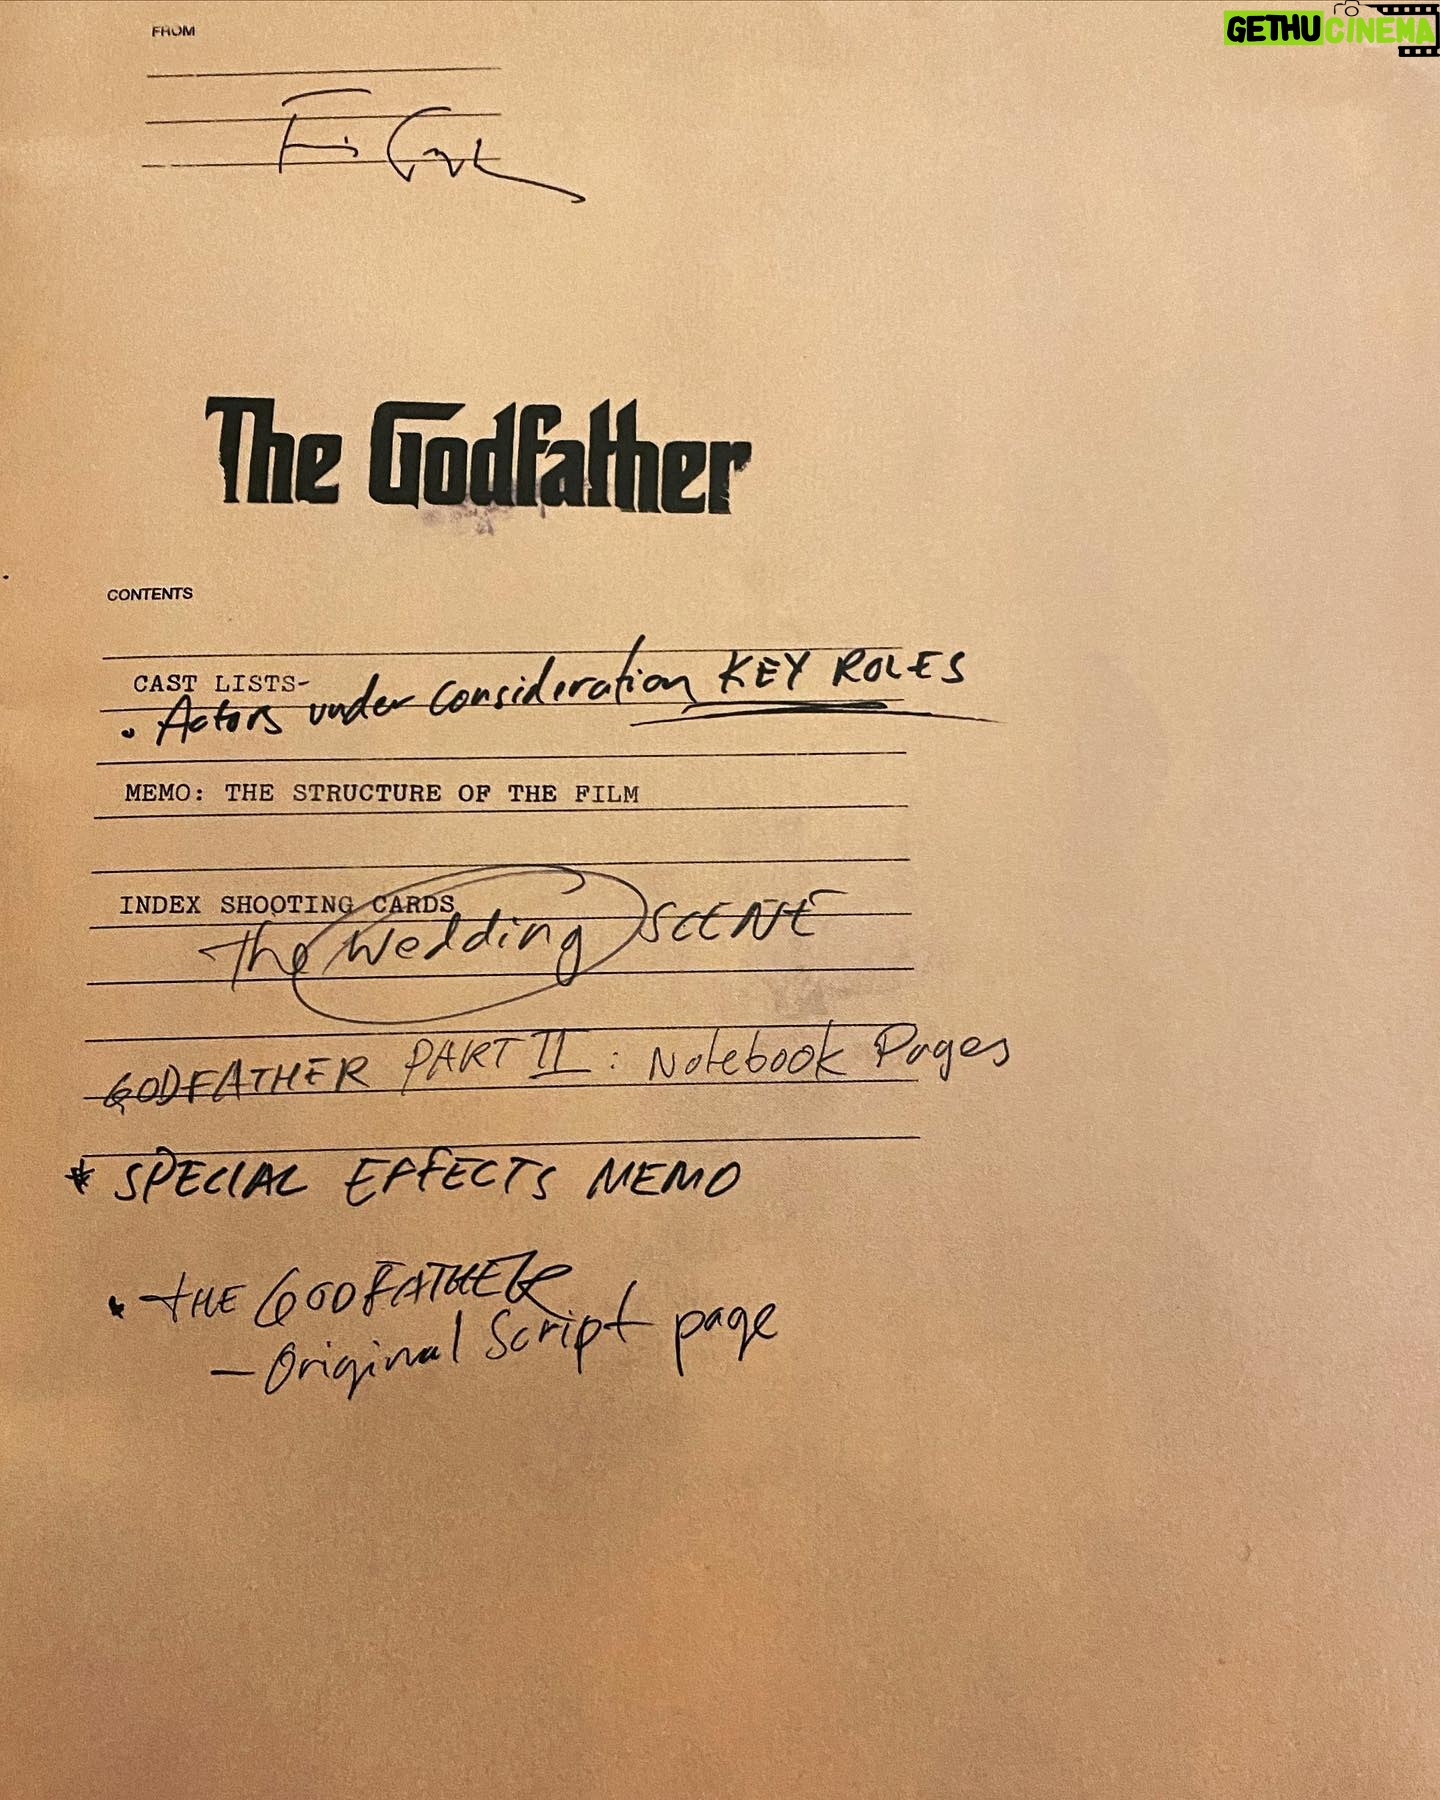 FROM
GETHUCINEMA
The Godfather
CONTENTS
CAST LISTS-
. Actors under consideration KEY ROLES
MEMO: THE STRUCTURE OF THE FILM
INDEX SHOOTING CARDS
The Wedding SCENE
GODFATHER PART II: Notebook Pages
* SPECIAL EFFECTS MEMO
• THE GODFATHER
— Original Script page